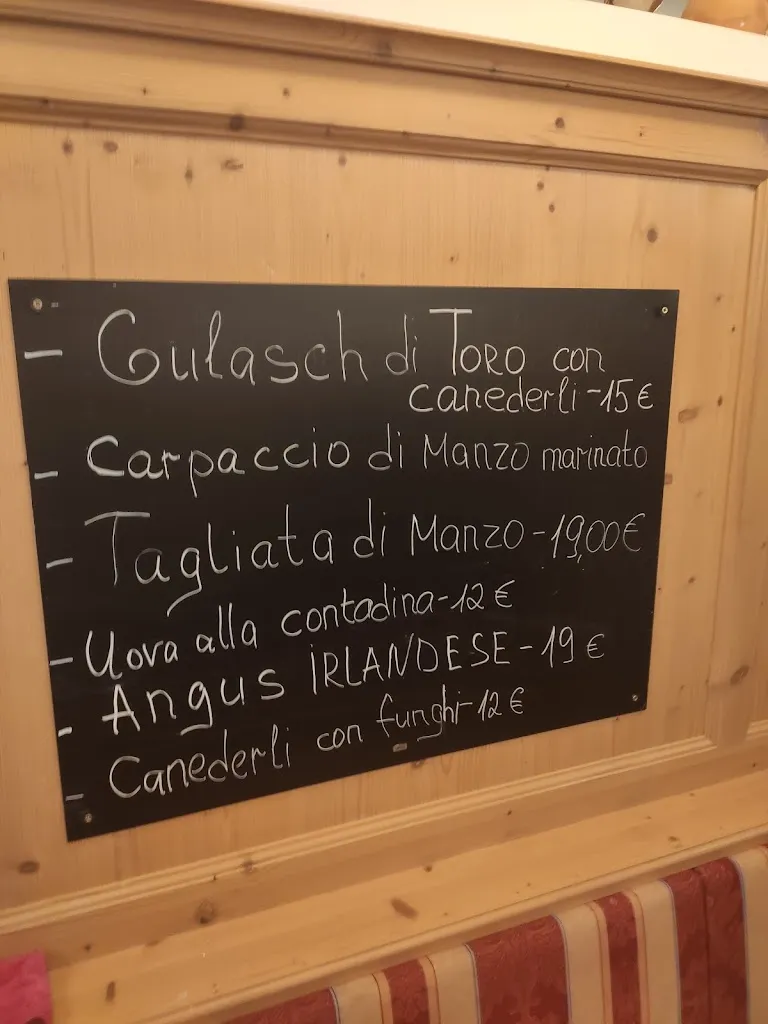 - Gulasch di TORO con
canederli - 15 €
- Carpaccio di Manzo marinato
- Tagliata di Manzo - 19,00 €
- Uova alla contadina - 12 €
- Angus IRLANDESE - 19 €
- Canederli con funghi - 12 €